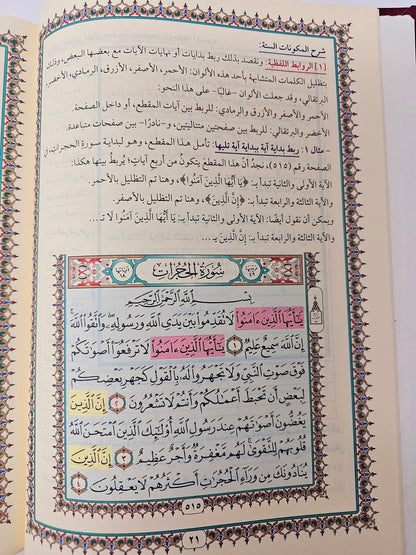 شرح المكونات الستة:
[١] الروابط اللفظية: ونقصد بذلك ربط بدايات أو نهايات الآيات مع بعضها البعض، وذلك
بتظليل الكلمات المتشابهة بأحد هذه الألوان: الأحمر، الأصفر، الأزرق، الرمادي، الأخضر،
البرتقالي. وقد جعلت الألوان -غالبًا- على هذا النحو:
الأحمر والأصفر والأزرق والرمادي: للربط بين آيات المقطع، أو داخل الصفحة
الأخضر والبرتقالي: للربط بين صفحتين متتاليتين، و-نادرًا- بين صفحات متباعدة.
- مثال ١: ربط بداية آية ببداية آية تليها: تأمل هذا المقطع، وهو لبداية سورة الحجرات،
صفحة رقم (٥١٥)، نجدُ أنَّ هذا المقطع يتكونُ من أربع آيات؛ يُربط بينها هكذا:
الآية الأولى والثانية تبدأ بـ: ﴿يَا أَيُّهَا الَّذِينَ آمَنُوا﴾، وهنا تم التظليل بالأحمر.
والآية الثالثة والرابعة تبدأ بـ: ﴿إِنَّ الَّذِينَ﴾، وهنا تم التظليل بالأصفر.
ويمكن أن نقول أيضًا: الآية الأولى والثانية تبدأ بـ: يَا أَيُّهَا الَّذِينَ آمَنُوا لَا تـ...
والآية الثالثة والرابعة تبدأ بـ: إِنَّ الَّذِينَ يـ...
سُورَةُ الحُجُرَاتِ
بِسْمِ اللَّهِ الرَّحْمَٰنِ الرَّحِيمِ
يَٰٓأَيُّهَا ٱلَّذِينَ ءَامَنُوا۟ لَا تُقَدِّمُوا۟ بَيْنَ يَدَىِ ٱللَّهِ وَرَسُولِهِۦ وَٱتَّقُوا۟ ٱللَّهَ
إِنَّ ٱللَّهَ سَمِيعٌ عَلِيمٌ ١ يَٰٓأَيُّهَا ٱلَّذِينَ ءَامَنُوا۟ لَا تَرْفَعُوٓا۟ أَصْوَٰتَكُمْ
فَوْقَ صَوْتِ ٱلنَّبِىِّ وَلَا تَجْهَرُوا۟ لَهُۥ بِٱلْقَوْلِ كَجَهْرِ بَعْضِكُمْ
لِبَعْضٍ أَن تَحْبَطَ أَعْمَٰلُكُمْ وَأَنتُمْ لَا تَشْعُرُونَ ٢ إِنَّ ٱلَّذِينَ
يَغُضُّونَ أَصْوَٰتَهُمْ عِندَ رَسُولِ ٱللَّهِ أُو۟لَٰٓئِكَ ٱلَّذِينَ ٱمْتَحَنَ ٱللَّهُ
قُلُوبَهُمْ لِلتَّقْوَىٰ لَهُم مَّغْفِرَةٌ وَأَجْرٌ عَظِيمٌ ٣ إِنَّ ٱلَّذِينَ
يُنَادُونَكَ مِن وَرَآءِ ٱلْحُجُرَٰتِ أَكْثَرُهُمْ لَا يَعْقِلُونَ ٤
٥١٥
٢١